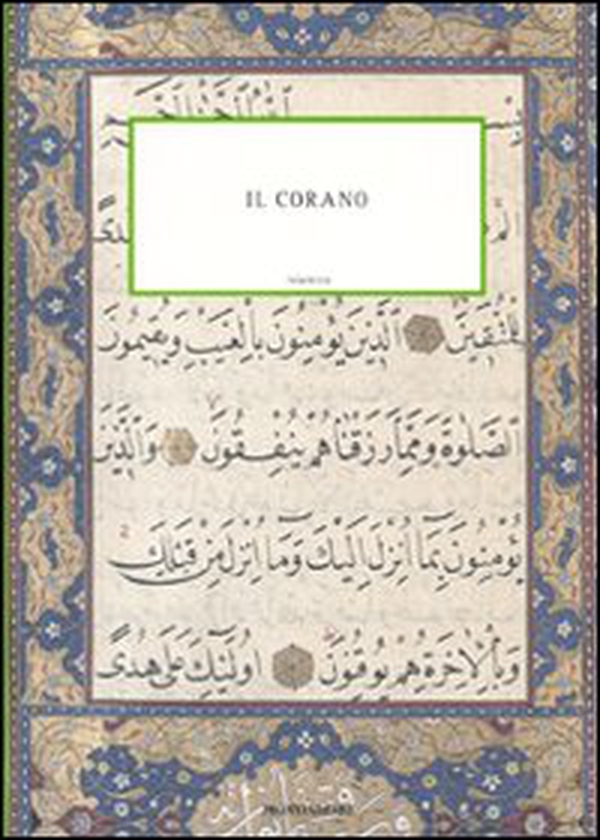 IL CORANO
لِلْمُتَّقِينَ الَّذِينَ يُؤْمِنُونَ بِالْغَيْبِ وَيُقِيمُونَ
الصَّلَوٰةَ وَمِمَّا رَزَقْنَاهُمْ يُنْفِقُونَ وَالَّذِينَ
يُؤْمِنُونَ بِمَا أُنْزِلَ إِلَيْكَ وَمَا أُنْزِلَ مِنْ قَبْلِكَ
وَبِالْآخِرَةِ هُمْ يُوقِنُونَ أُولَٰئِكَ عَلَىٰ هُدًى
MONDADORI